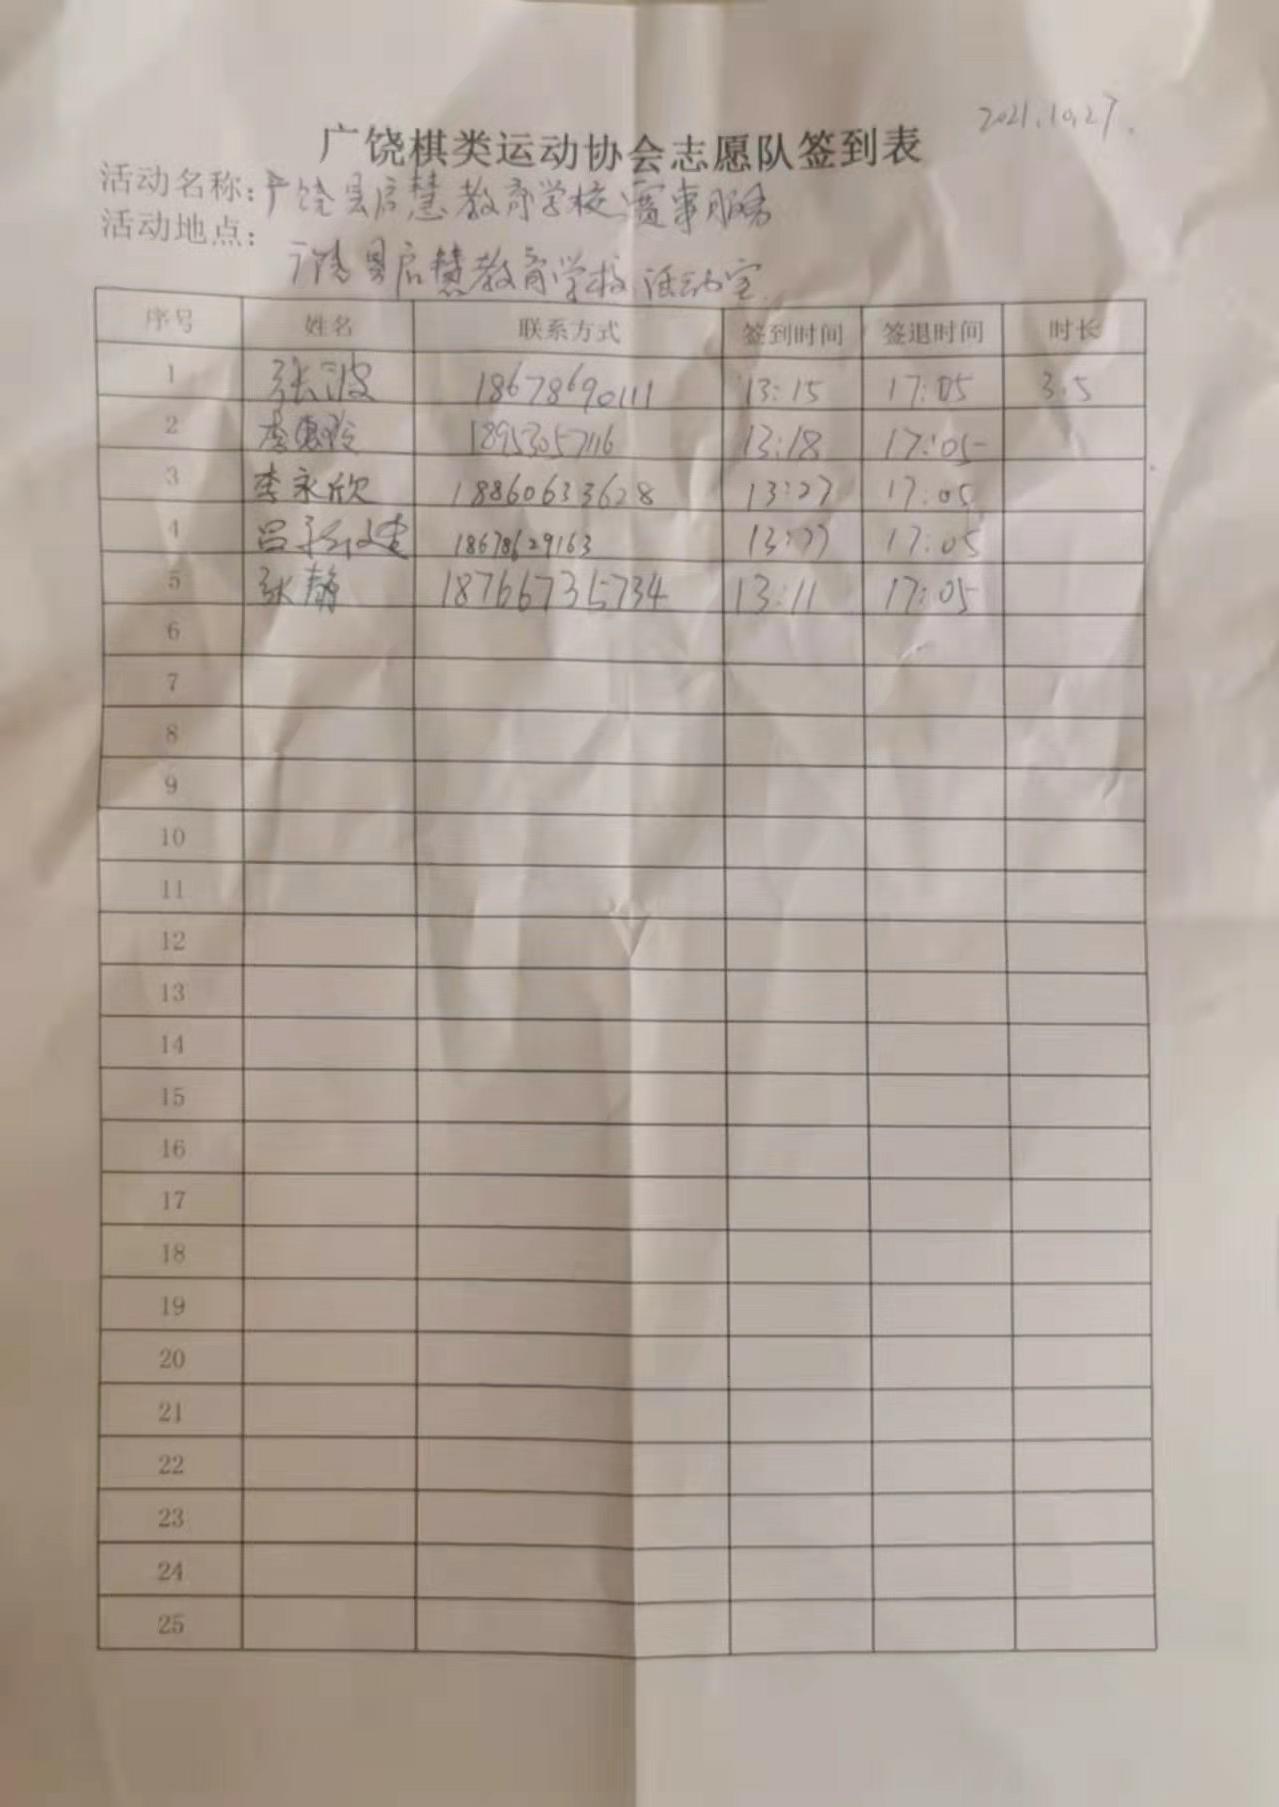 2021.10.27.
广饶棋类运动协会志愿队签到表
活动名称:广饶县启慧教育学校赛事服务
活动地点:
广饶县启慧教育学校活动室
序号 姓名 联系方式 签到时间 签退时间 时长
1 张波 18678690111 13:15 17:05 3.5
2 李惠玲 18953057116 13:18 17:05
3 李永欣 18860633628 13:27 17:05
4 吕 18678629163 17:05
5 张静 18766735734 13:11 17:05
6
7
8
9
10
11
12
13
14
15
16
17
18
19
20
21
22
23
24
25